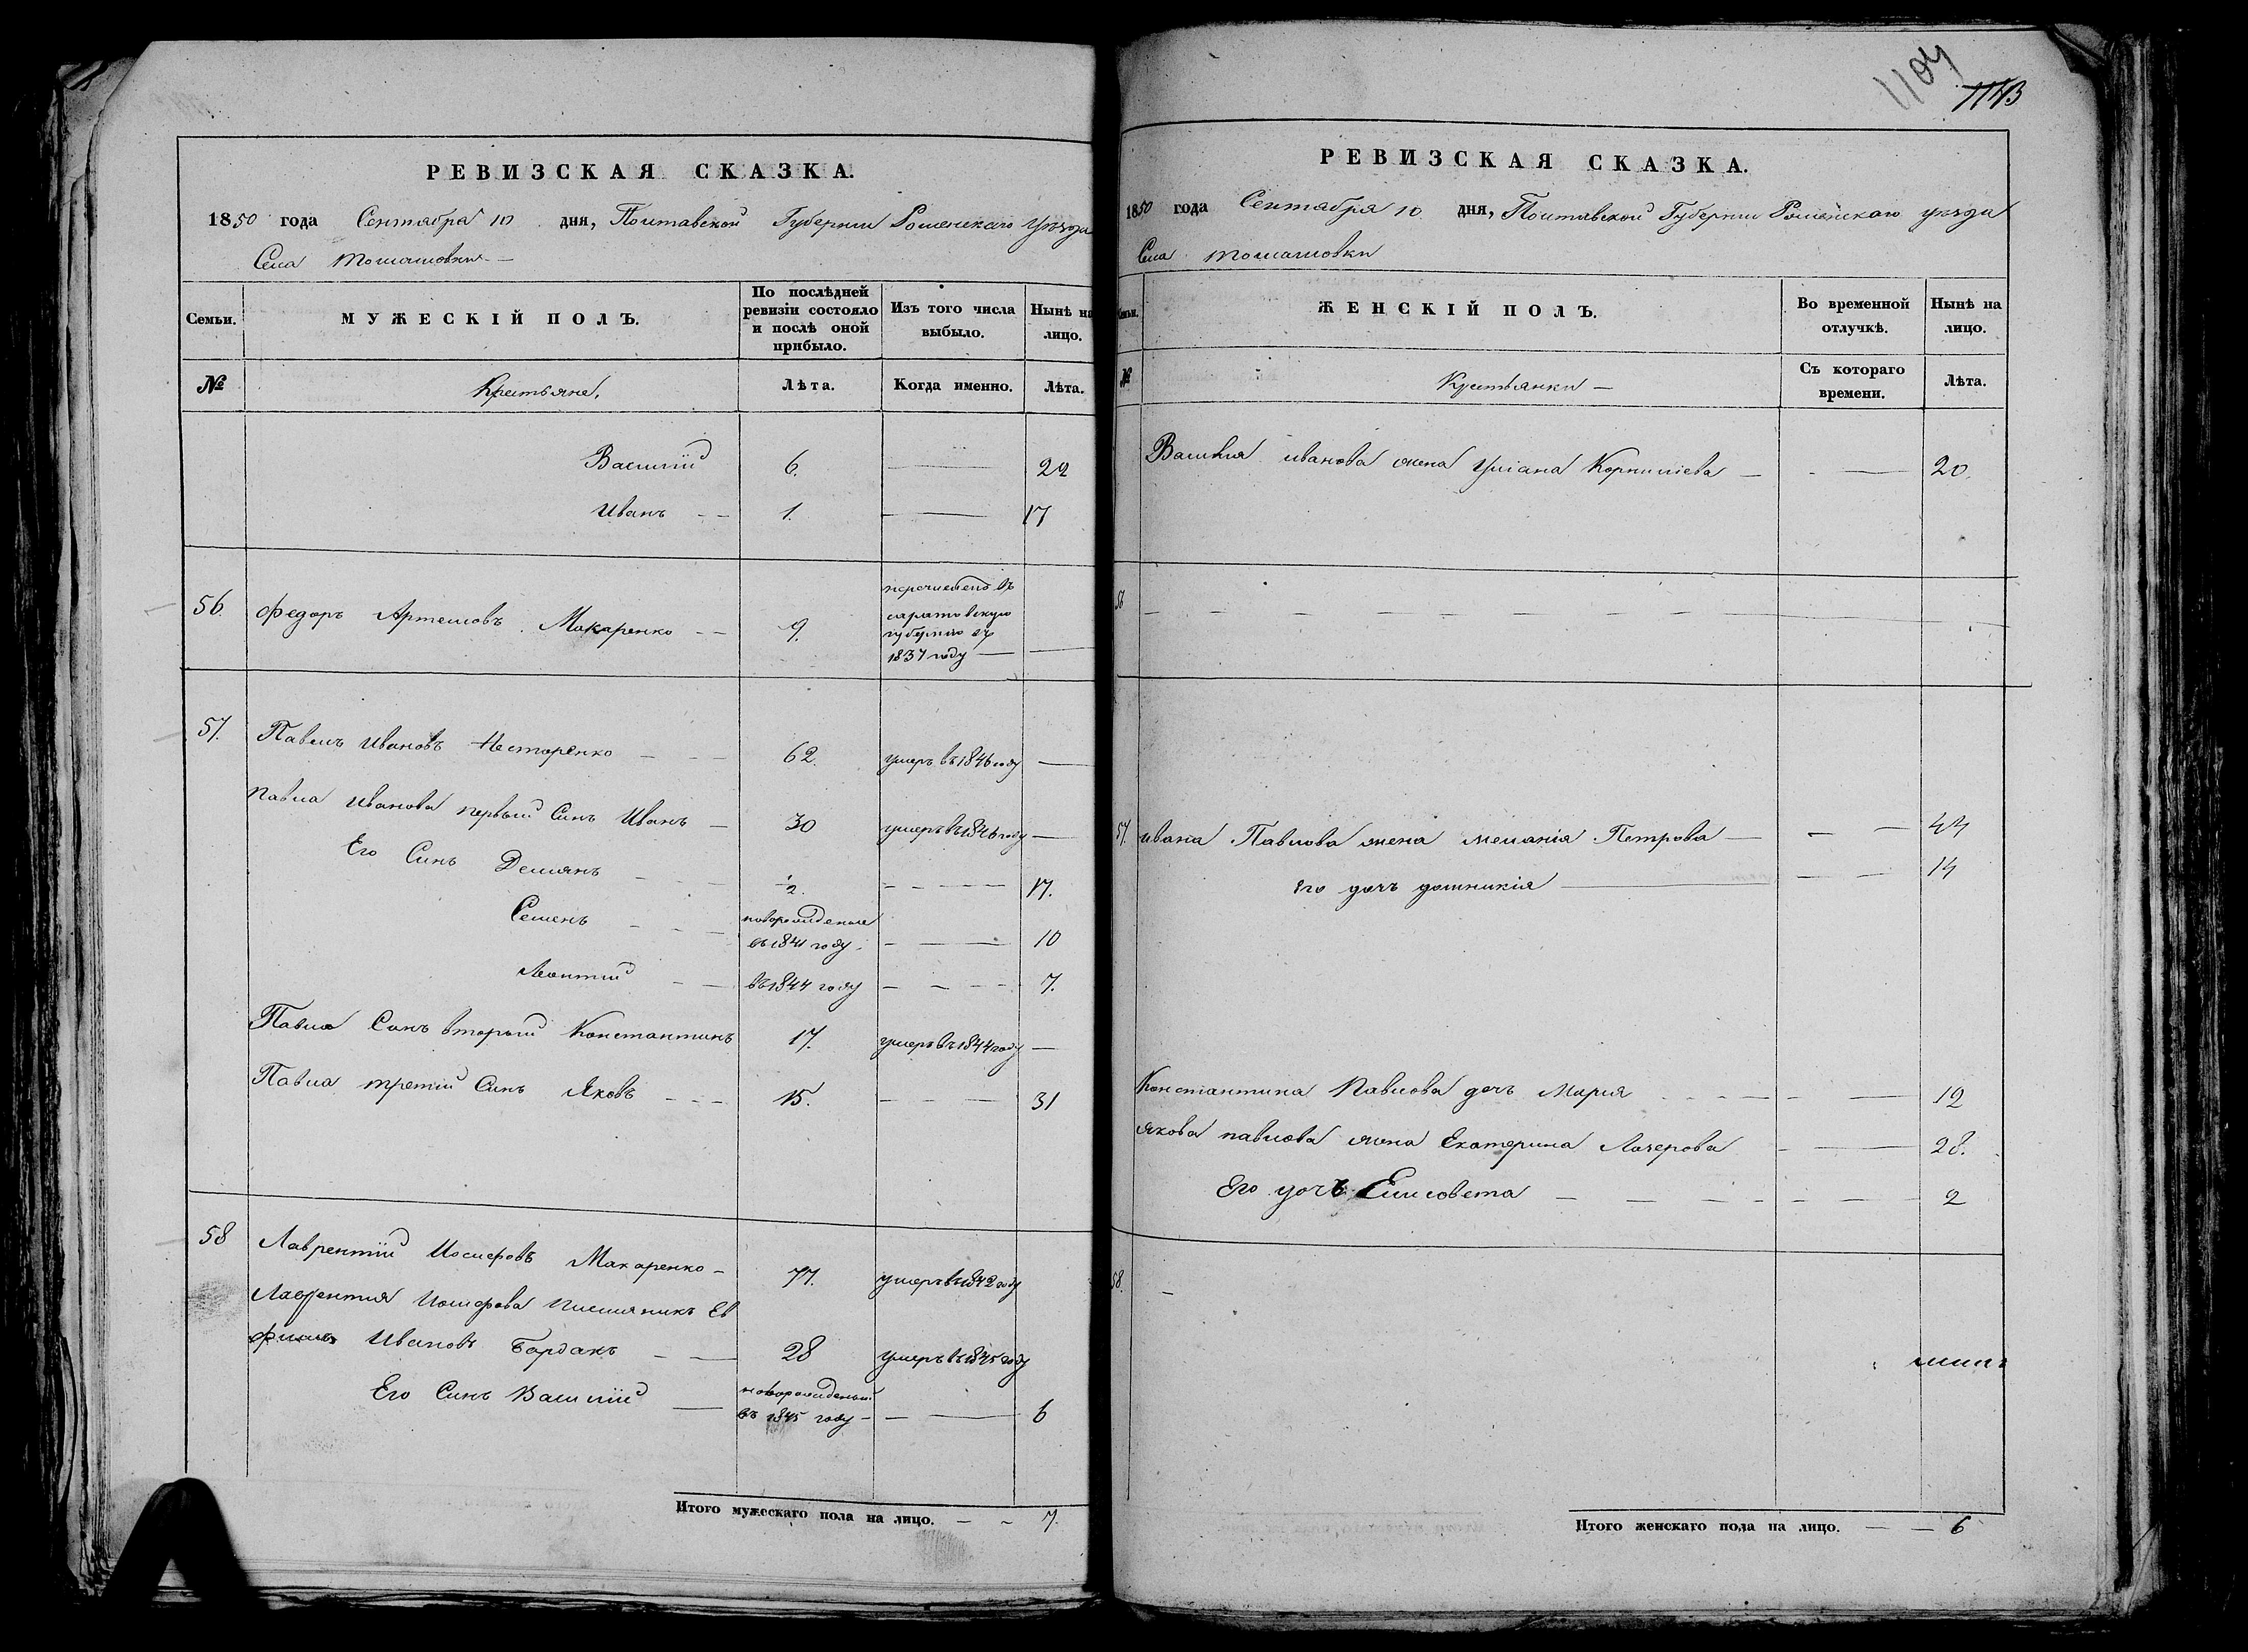 РЕВИЗСКАЯ СКАЗКА.
1850 года Сентября 10 дня, Полтавской Губернии Роменскаго Уѣзда
Села Томашовки
Семьи.
МУЖЕСКІЙ ПОЛЪ.
По послѣдней ревизіи состояло и послѣ оной прибыло.
Изъ того числа выбыло.
Нынѣ на лицо.
№
Крестьяне,
Лѣта.
Когда именно.
Лѣта.
Василій 6. — 22
Иванъ — 1. — 17
56. Федоръ Артемовъ Макаренко — 9.
перечислено въ
саратовскую
губернію въ
1837 году —
57. Павелъ Ивановъ Нестеренко — 62. умеръ въ 1846 году —
Павла Иванова первый Синъ Иванъ — 30 умеръ въ 1846 году —
Его Синъ Демянъ — ½. — 17.
Семенъ — новорожденые въ 1841 году — 10
Леонтий — въ 1844 году — 7.
Павла Синъ вторый Константинъ 17. умеръ въ 1844 году —
Павла третий Синъ Яковъ — 15. — 31
58 Лаврентій Иосифовъ Макаренко — 77. умеръ въ 1842 году
Лаврентия Иосифова племяникъ Ев
фимъ Ивановъ Бардакъ — 28 умеръ въ 1845 году
Его Синъ Василій — новорожденый въ 1845 году — 6
Итого мужескаго пола на лицо. — 7.
1104
РЕВИЗСКАЯ СКАЗКА.
1850 года Сентября 10 дня, Полтавской Губернии Роменскаго уезда
Села Томашовки
Семьи.
ЖЕНСКІЙ ПОЛЪ.
Во временной отлучкѣ.
Нынѣ на лицо.
№
Крестьянки —
Съ котораго времени.
Лѣта.
Василия иванова жена Улiана Корнилiева — 20.
56
57. ивана Павлова жена мелания Петрова — 44
его дочь домникия — 14
Константина Павлова дочь Мария — 12
якова павлова жена Екатерина Лазерова — 28.
Его дочъ Елисовета — 2
58. —
Итого женскаго пола на лицо. — 6